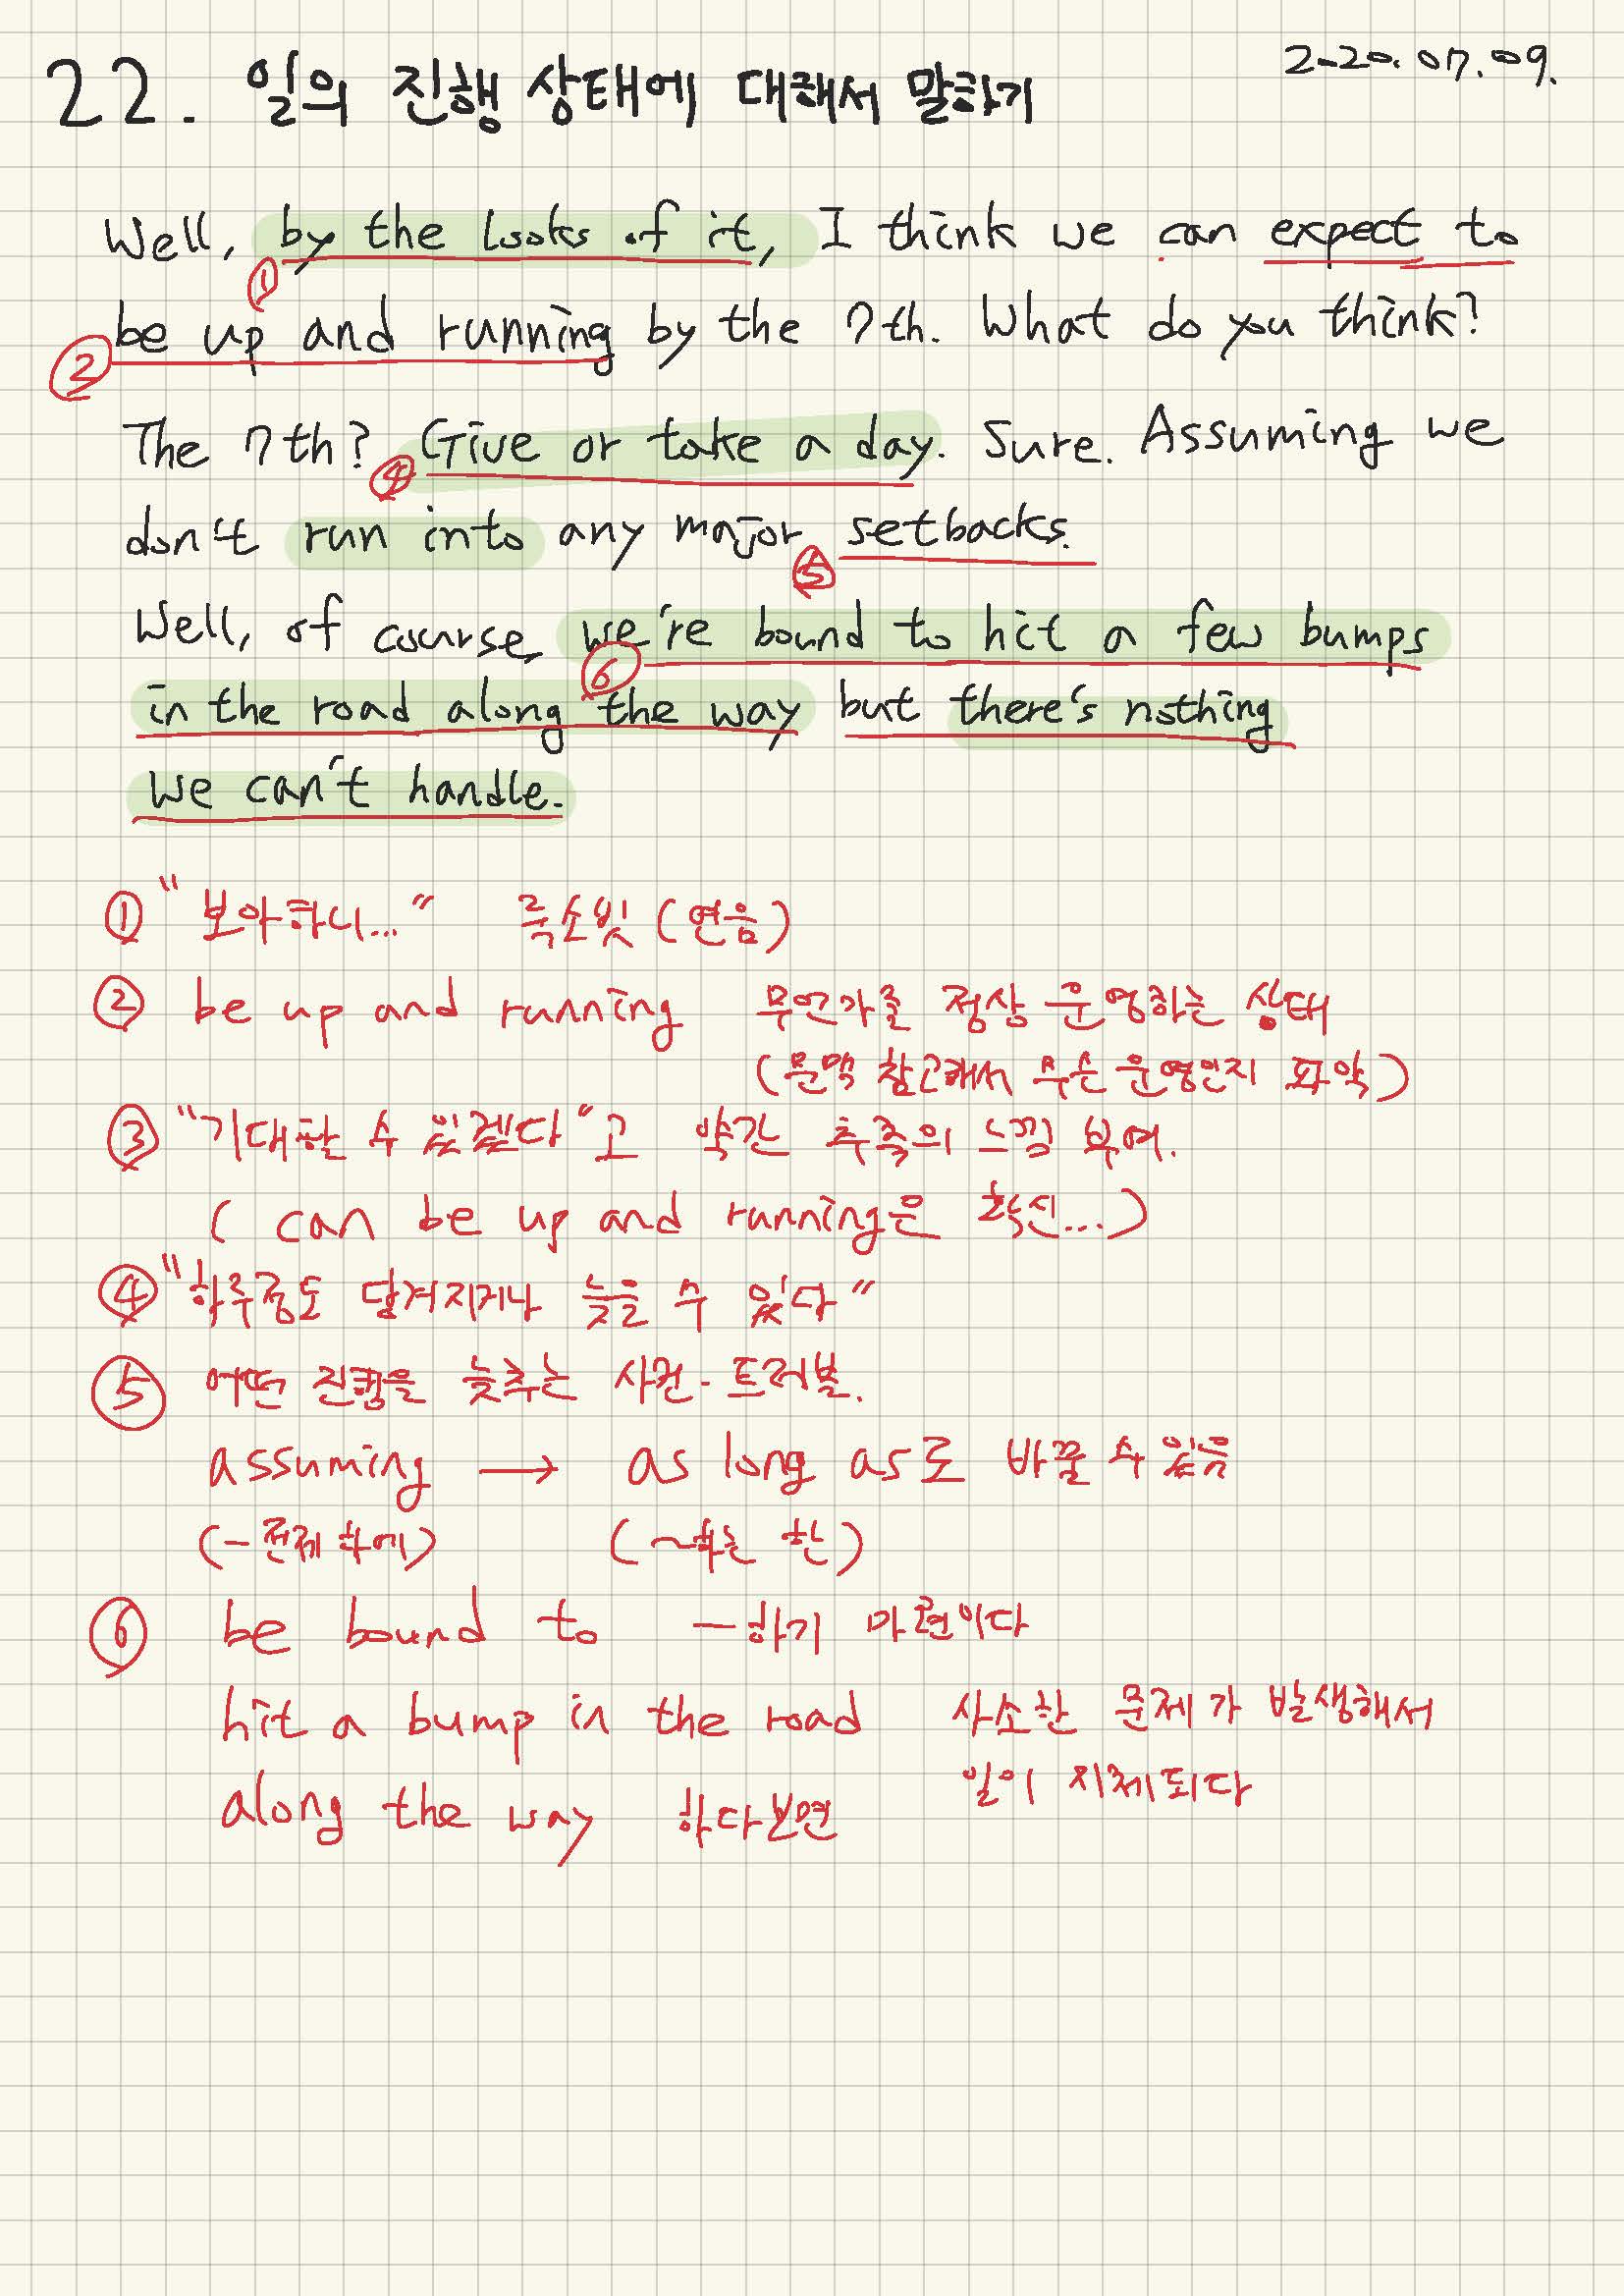 22. 일의 진행 상태에 대해서 말하기
2020.07.09.
Well, by the looks of it, I think we can expect to
①
be up and running by the 7th. What do you think?
②
The 7th? Give or take a day. Sure. Assuming we
④
don't run into any major setbacks.
⑤
Well, of course, we're bound to hit a few bumps
⑥
in the road along the way but there's nothing
we can't handle.
① "보아하니..." 룩소빗 (연음)
② be up and running 무언가를 정상 운영하는 상태
(문맥 참고해서 무슨 운영인지 파악)
③ "기대할 수 있겠다"고 약간 추측의 느낌 부여.
(can be up and running은 확신...)
④ "하루정도 당겨지거나 늦을 수 있다"
⑤ 어떤 진행을 늦추는 사건-트러블.
assuming → as long as로 바꿀 수 있음
(-전제 하에) (~하는 한)
⑥ be bound to -하기 마련이다
hit a bump in the road 사소한 문제가 발생해서
일이 지체되다
along the way 하다보면